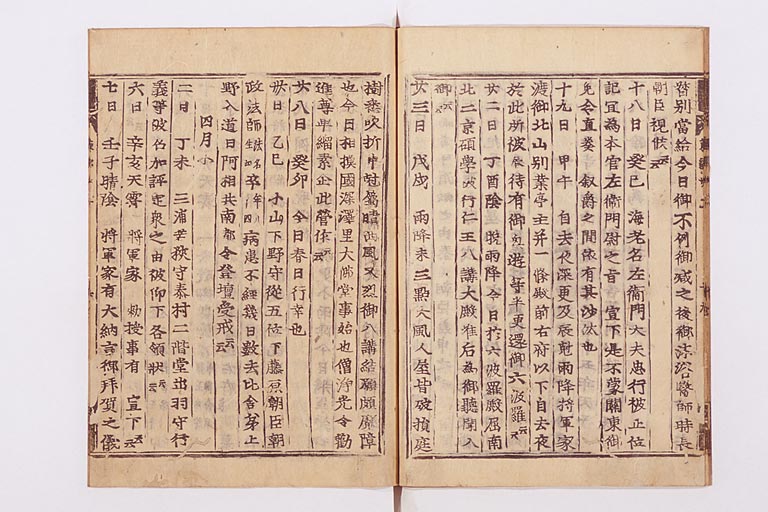 替別當給今日御不例御減之後御沐浴醫師時長
朝臣視候云云
十八日 癸巳 海老名左衞門大夫忠行被止位
記宜為本官左衞門尉之旨 宣下是不蒙關東御
免令直奏 叙爵之間依有其沙汰也
十九日 甲午 自去夜深更及辰尅雨降將軍家
渡御北山別業亭主并一條殿前右府以下自去夜
於此所被 待有御 遊等半更還御六波羅云云
廿二日 丁酉陰 晩雨降今日於六波羅殿屈南
北二京碩學被行仁王八講大殿准后為御聽聞入
御云云
廿三日 戊戌 雨降未三點大風人屋皆破損庭
樹悉吹折申尅屬晴雨風又烈御八講結願頗魔障
也今日相撲國深澤里大佛堂事始也僧淨光令勸
進尊卑緇素企此營作云云
廿八日 癸卯 今日春日行幸也
卅日 乙巳 小山下野守從五位下藤原朝臣朝
政法師生西法名卒年八十四病患不經幾日數去比舍弟上
野入道日阿相共南都令登壇受戒云云
四月小
二日 丁未 三浦 守泰村二階堂出羽守行
義等被仰加評定衆之由被仰下各領狀云云
六日 辛亥天霽 將軍家 勅授事有 宣下云云
七日 壬子晴陰 將軍家有大納言御拜賀之儀